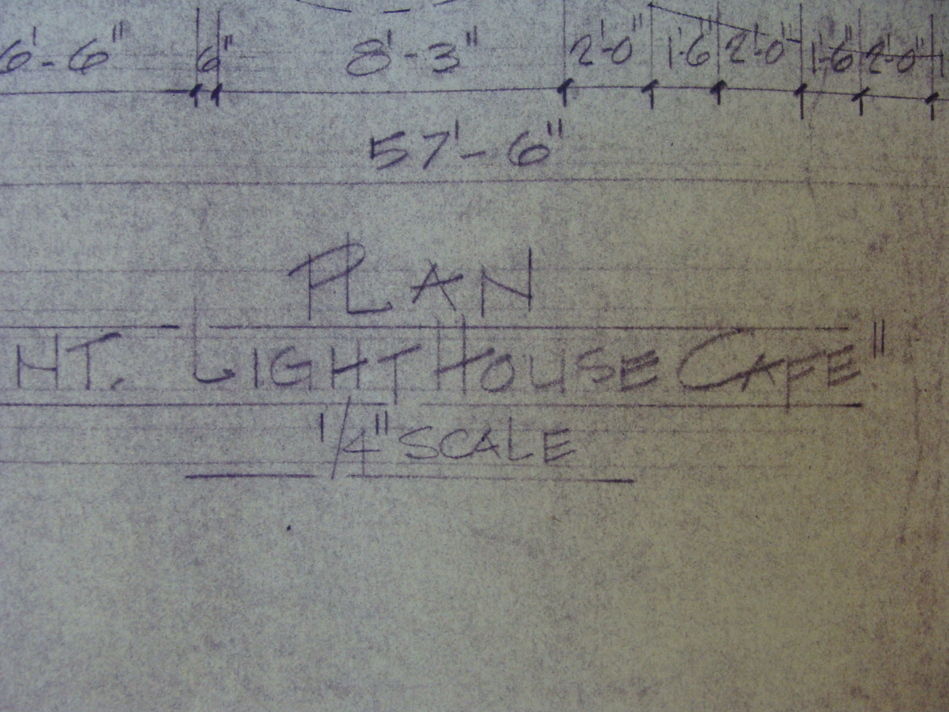 6'-6" 6" 8'-3" 2'-0" 1'-6" 2'-0" 1'-6" 2'-0"
57'-6"
PLAN
HT. LIGHTHOUSE CAFE"
1/4" SCALE